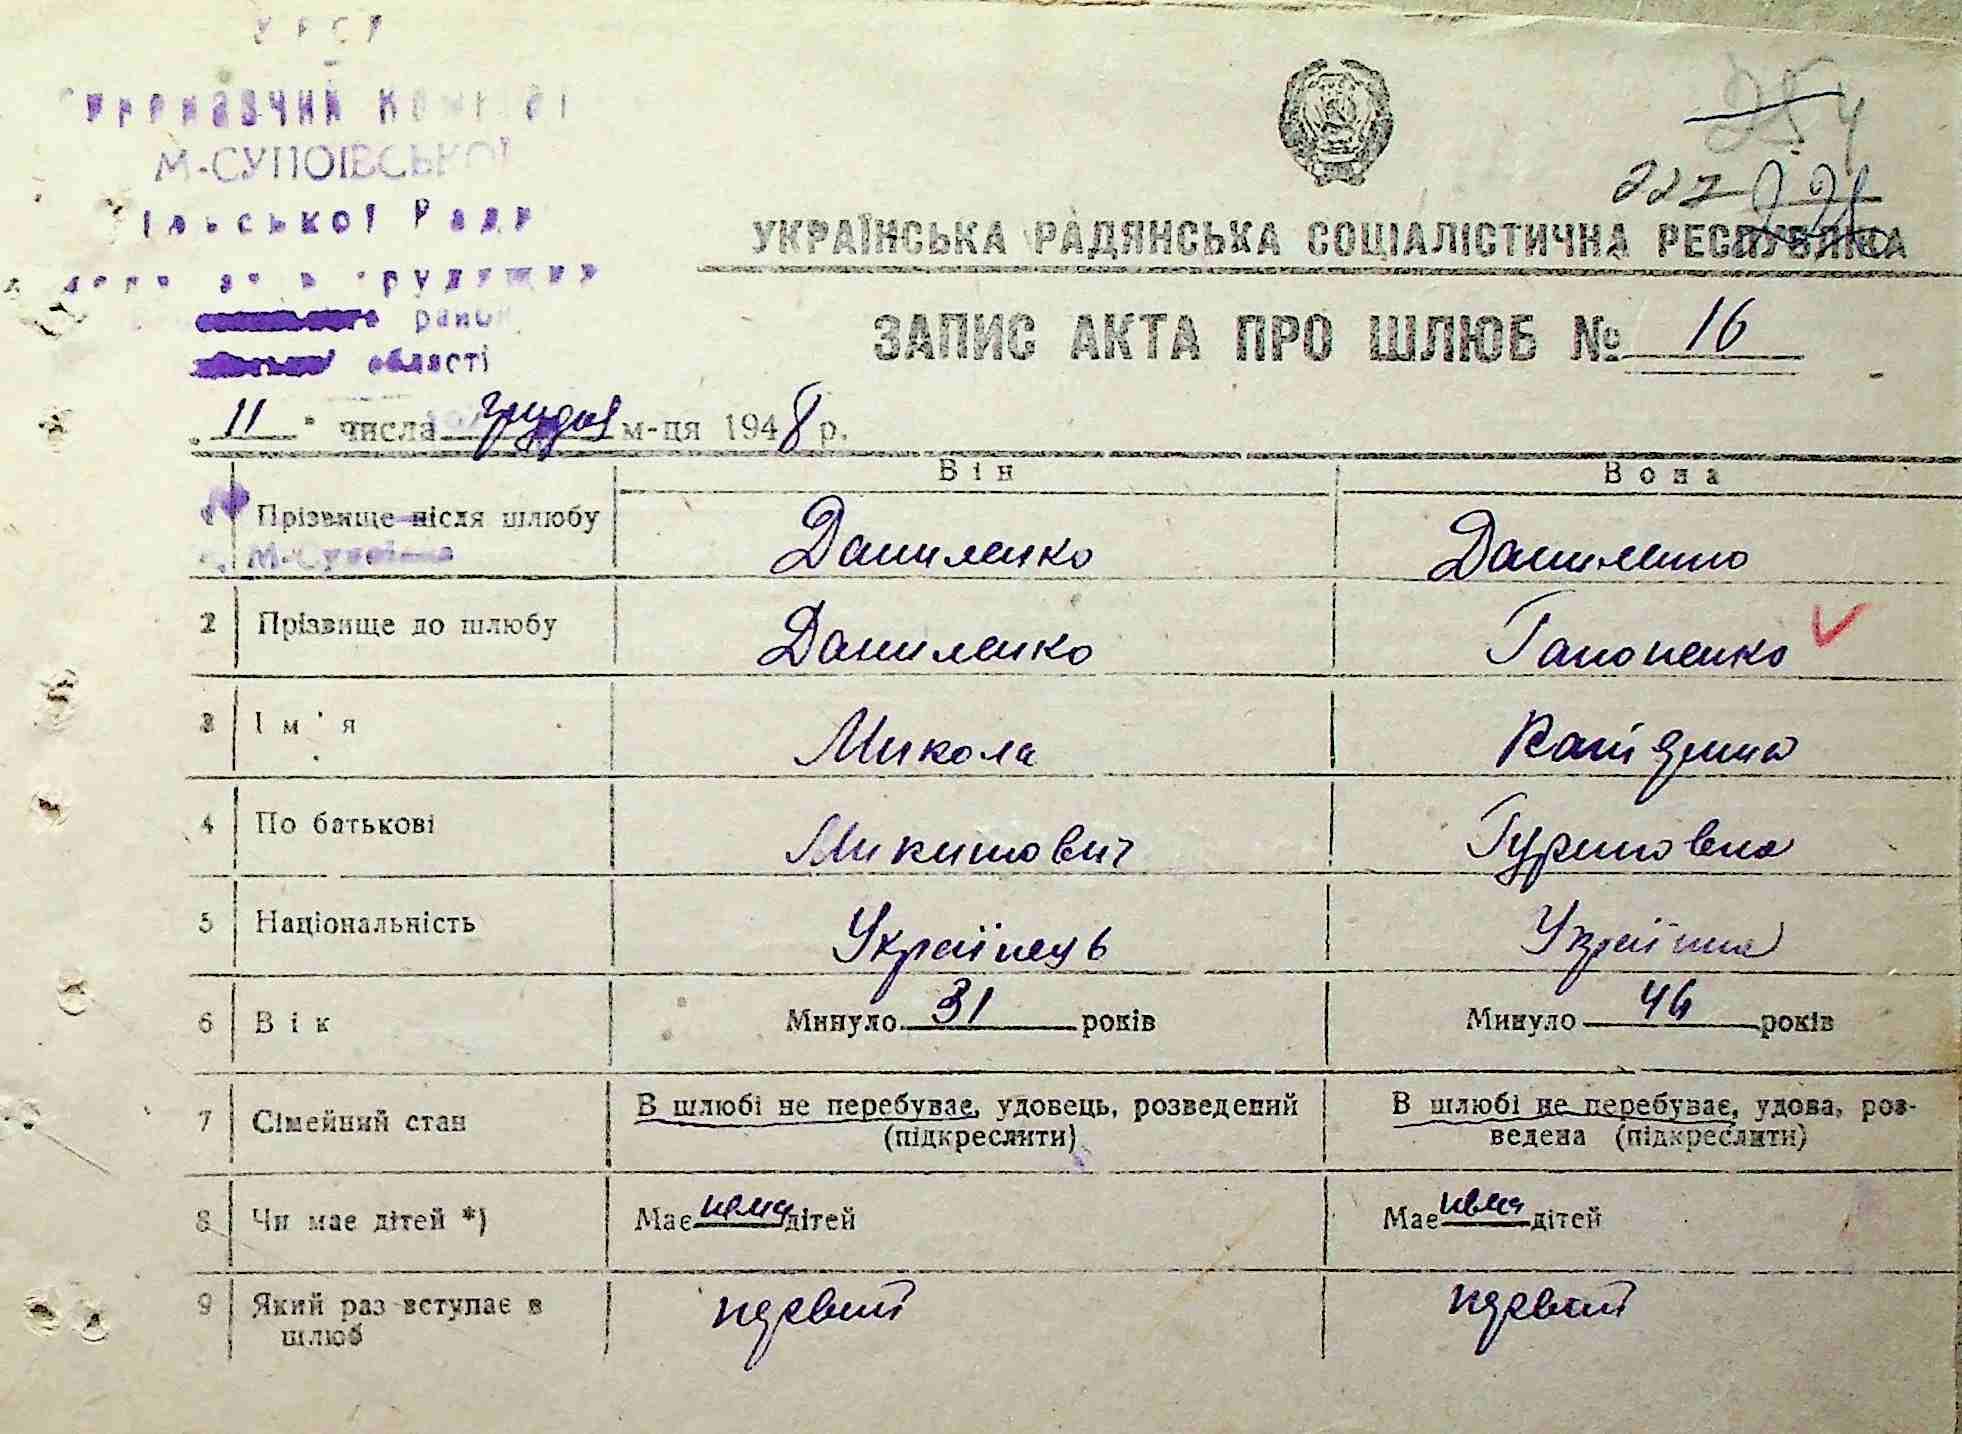 УРСР
Виконавчий Комітет
М-СУПОЇВСЬКОЇ
сільської Ради
депутатів трудящих
району
області
254
227 228
УКРАЇНСЬКА РАДЯНСЬКА СОЦІАЛІСТИЧНА РЕСПУБЛІКА
ЗАПИС АКТА ПРО ШЛЮБ № 16
„ 11 " числа грудня м-ця 1948 р.
Він Вона
1 Прізвище після шлюбу Даниленко Даниленко
М-Супоївка
2 Прізвище до шлюбу Даниленко Гапоненко
3 Ім'я Микола Катерина
4 По батькові Микитович Гуриновна
5 Національність Українець Українка
6 Вік Минуло 31 років Минуло років
7 Сімейний стан В шлюбі не перебуває, удовець, розведений (підкреслити) В шлюбі не перебуває, удова, роз-
ведена (підкреслити)
8 Чи має дітей *) Має нема дітей Має нема дітей
9 Який раз вступає в шлюб первий первий